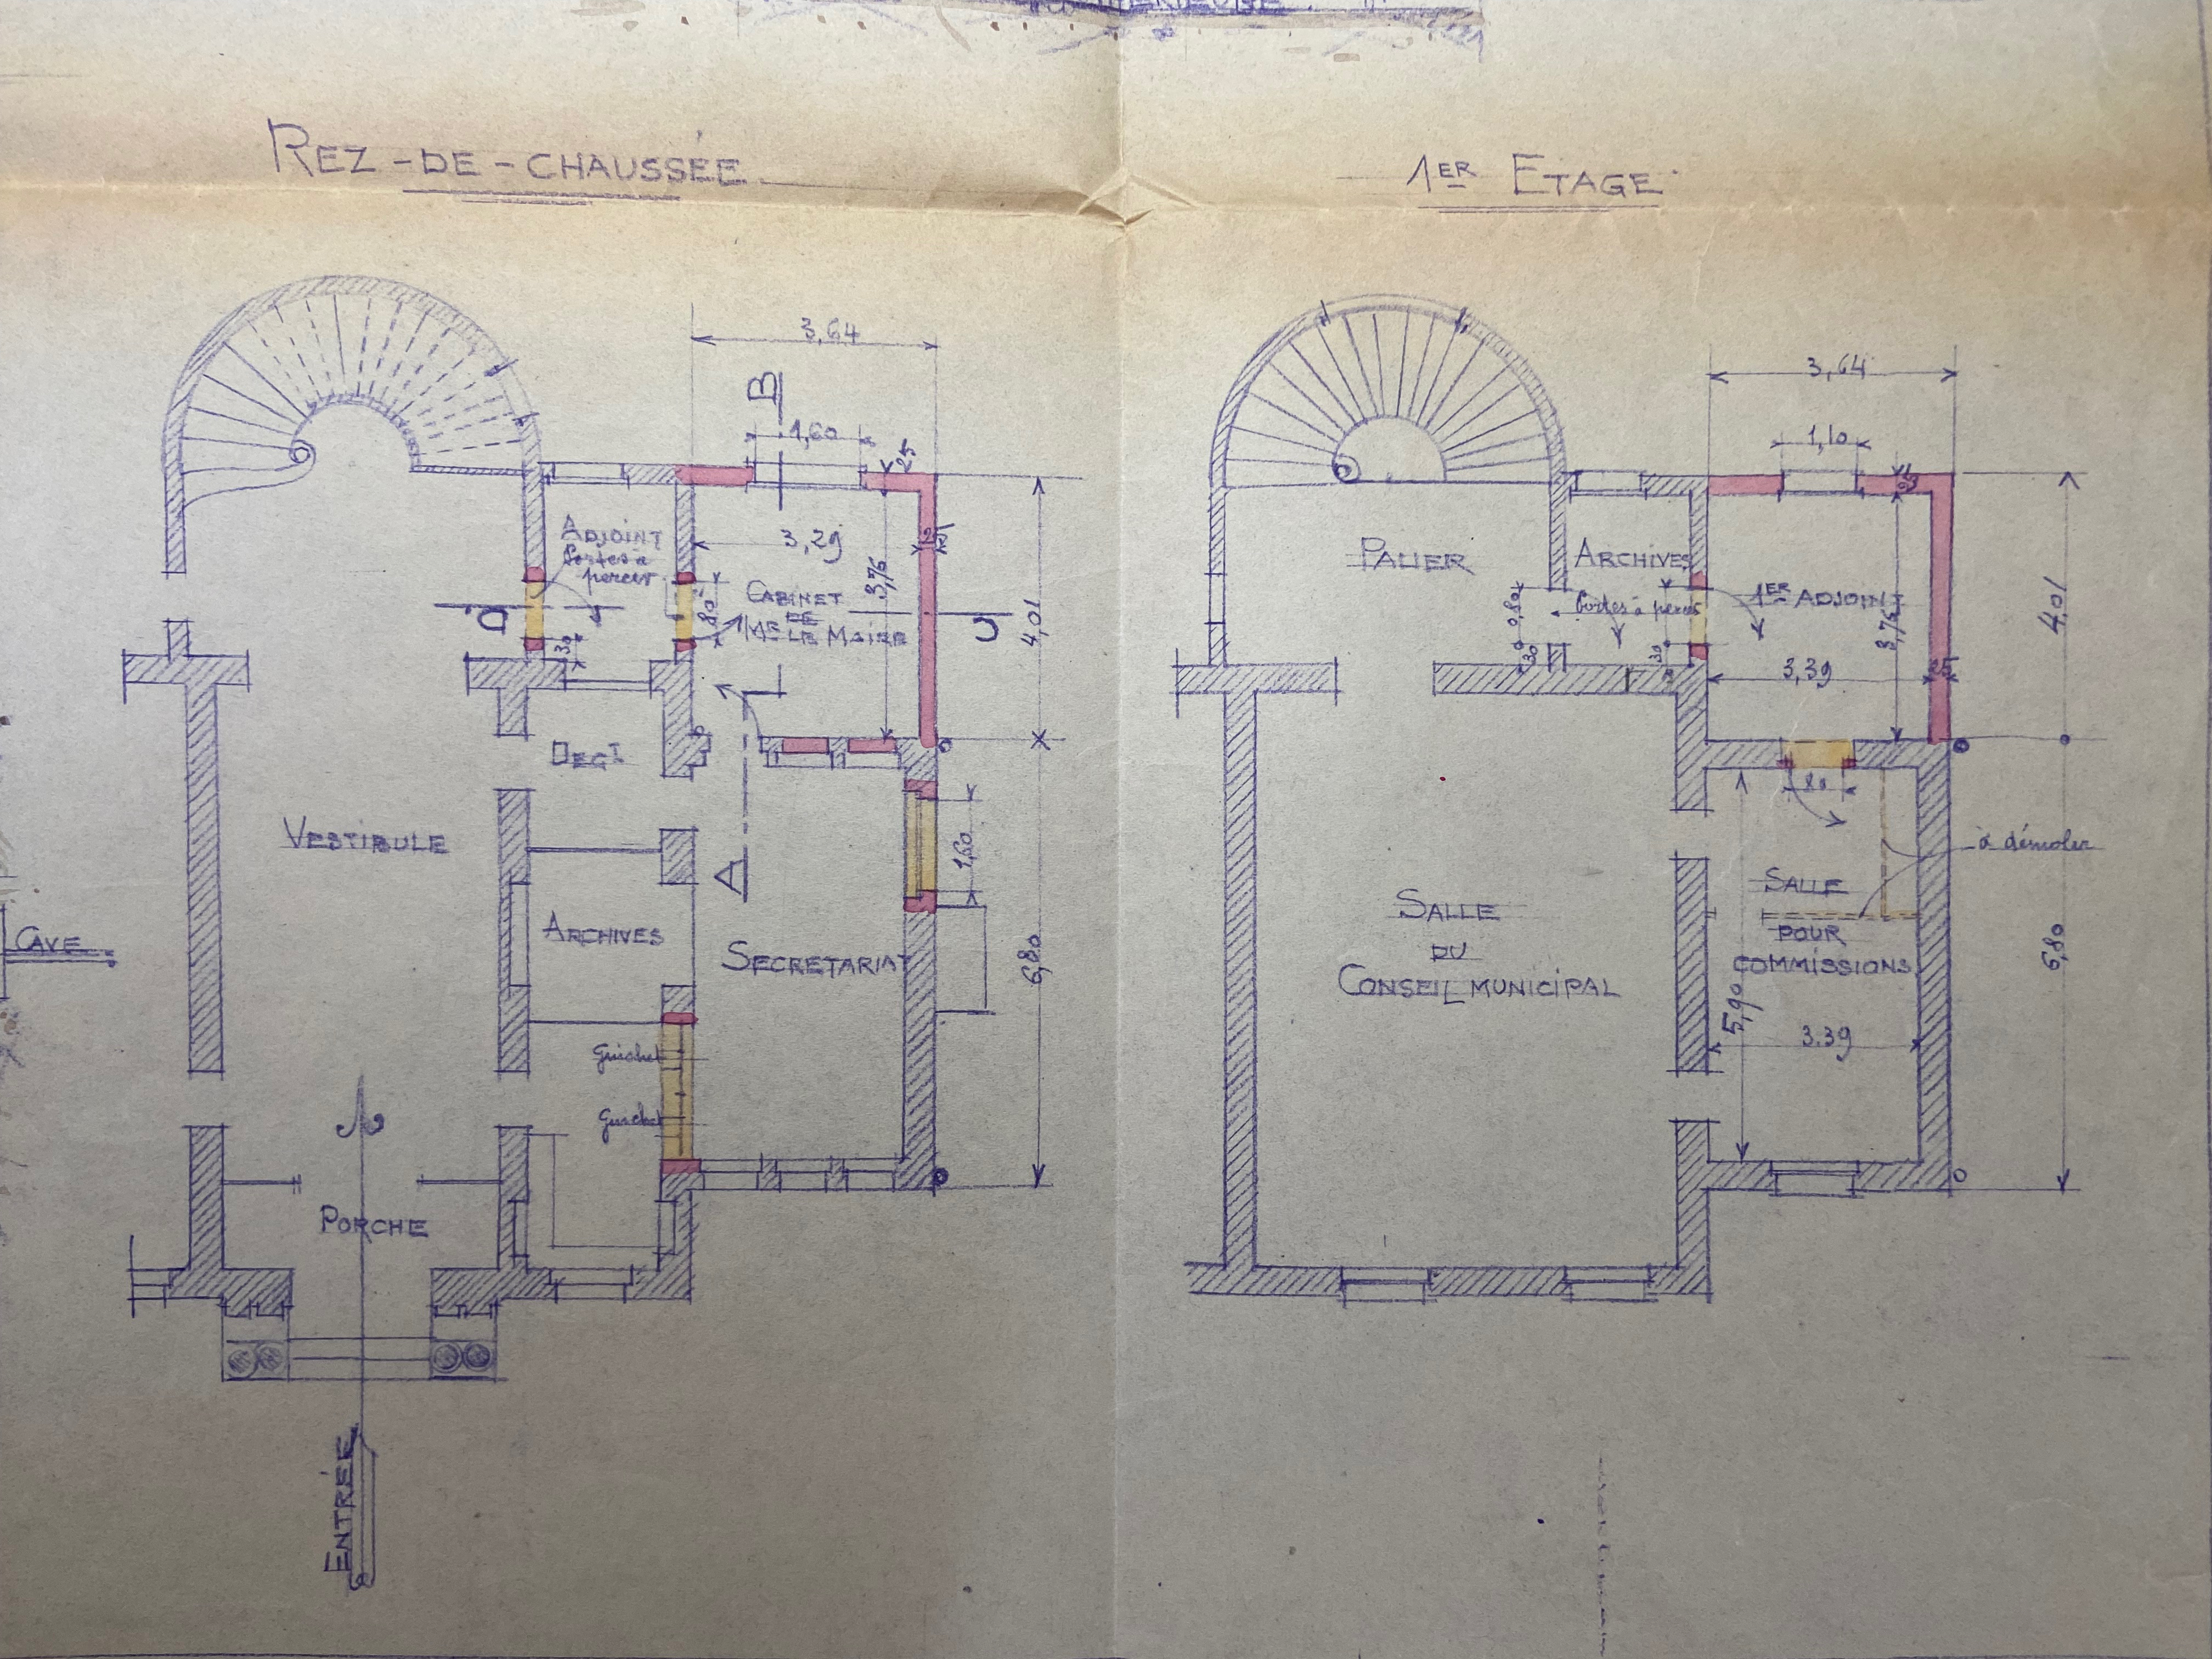 REZ-DE-CHAUSSÉE
1ER ETAGE
3,64
B
1,60
25
ADJOINT
Portes à
percer
3,29
3,76
25
80
CABINET
DE
Mr LE MAIRE
D
C
30
4,01
DEGT
VESTIBULE
A
1,60
CAVE
ARCHIVES
SECRETARIAT
6,80
Guichet
Guichet
PORCHE
ENTRÉE
3,64
1,10
25
PALIER
ARCHIVES
Portes à percer
1ER ADJOINT
0,80
30
30
3,76
3,39
25
4,01
80
à démolir
SALLE
DU
CONSEIL MUNICIPAL
SALLE
POUR
COMMISSIONS
5,90
3.39
6,80